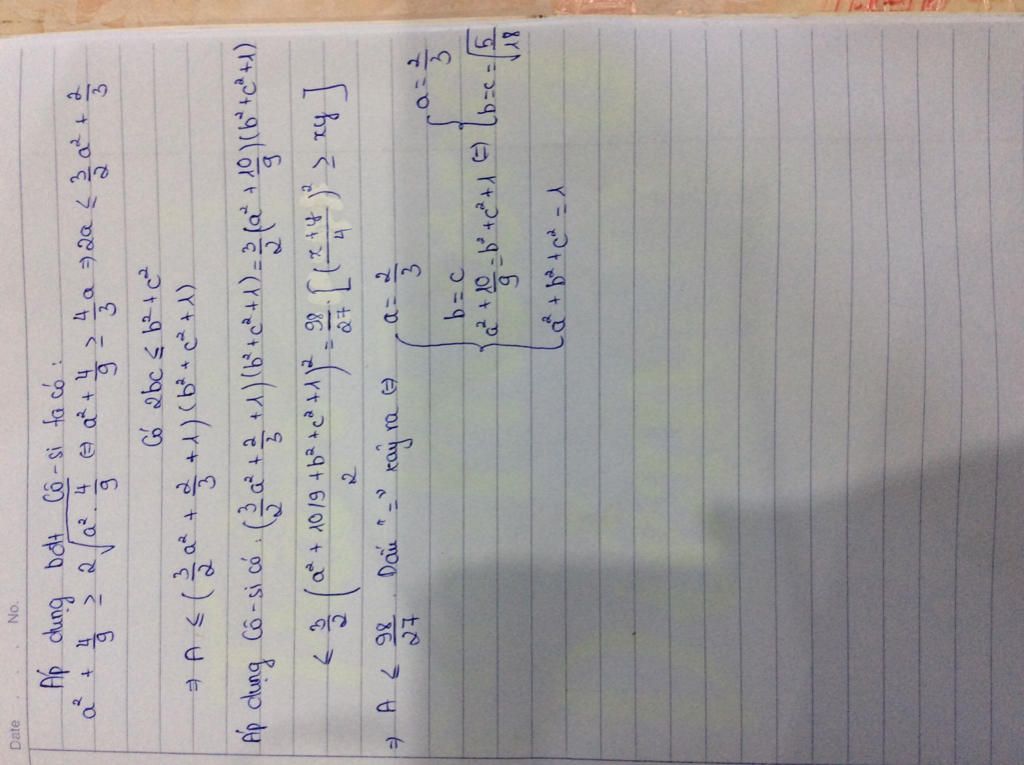 Date . . . No.
Áp dụng bđt Cô-si ta có:
a² + 4/9 ≥ 2√(a² · 4/9) ⇔ a² + 4/9 ≥ 4/3 a ⇒ 2a ≤ 3/2 a² + 2/3
Có 2bc ≤ b² + c²
⇒ A ≤ (3/2 a² + 2/3 + 1)(b² + c² + 1)
Áp dụng Cô-si có: (3/2 a² + 2/3 + 1)(b² + c² + 1) = 3/2 (a² + 10/9)(b² + c² + 1)
≤ 3/2 ((a² + 10/9 + b² + c² + 1)/2)² = 98/27 · [((x + y)/4)² ≥ xy]
⇒ A ≤ 98/27. Dấu "=" xảy ra ⇔ { a = 2/3
b = c
a² + 10/9 = b² + c² + 1 ⇔ { a = 2/3
b = c = √(5/18)
a² + b² + c² = 1